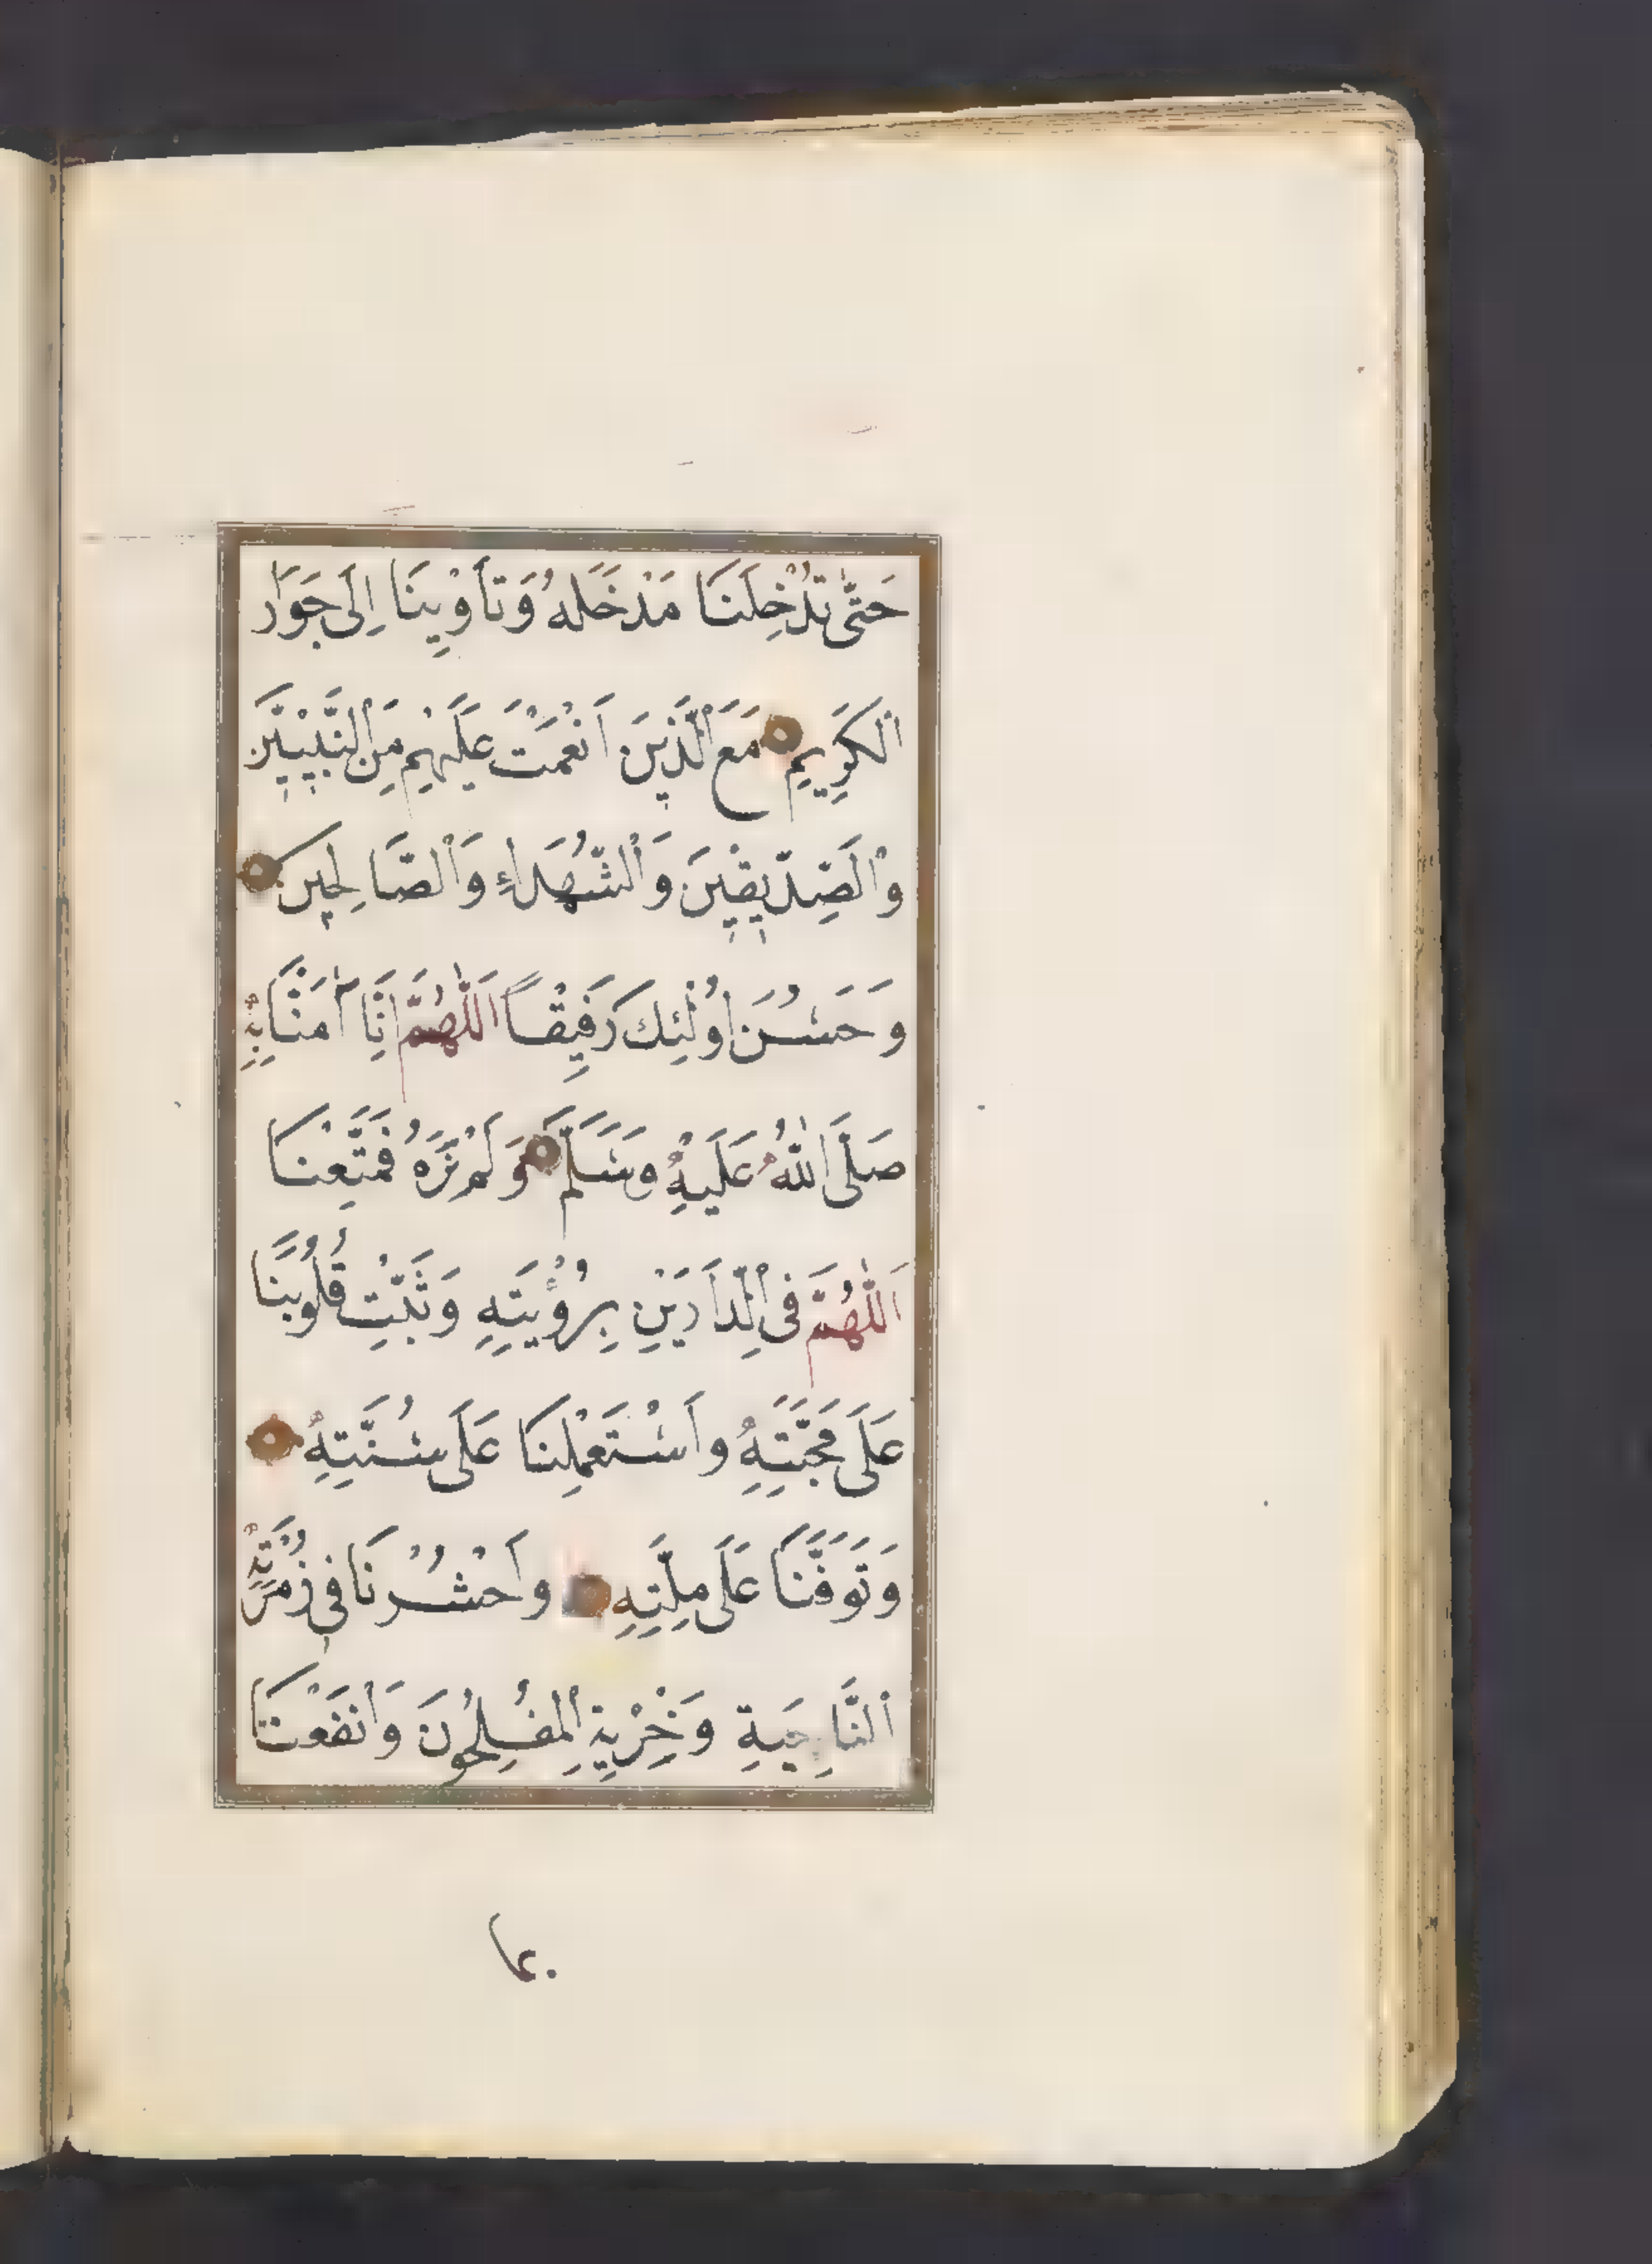 حَتّٰى تُدْخِلَنَا مَدْخَلَهُ وَتَأْوِيْنَا اِلَى جَوَارِ
اْلكَرِيمِ مَعَ الَّذِينَ اَنْعَمْتَ عَلَيْهِمْ مِنَ النَّبِيّٖنَ
وَالصِّدّيِقِينَ وَالشُّهَدَاءِ وَالصَّالِحِينَ
وَحَسُنَ اُولٰئِكَ رَفِيْقًا اَللّٰهُمَّ اِنَّا اٰمَنَّا بِهِ
صَلَّى اللّٰهُ عَلَيْهِ وَسَلَّمَ وَلَمْ نَرَهُ فَمَتِّعْنَا
اَللّٰهُمَّ فِى الدَّارَيْنِ بِرُؤْيَتِهِ وَثَبِّتْ قُلُوبَنَا
عَلَى مَحَبَّتِهِ وَاسْتَعْمِلْنَا عَلَى سُنَّتِهِ
وَتَوَفَّنَا عَلَى مِلَّتِهِ وَاحْشُرْنَا فِى زُمْرَتِهِ
النَّاجِيَةِ وَحِزْبِهِ الْمُفْلِحُونَ وَانْفَعْنَا
بما